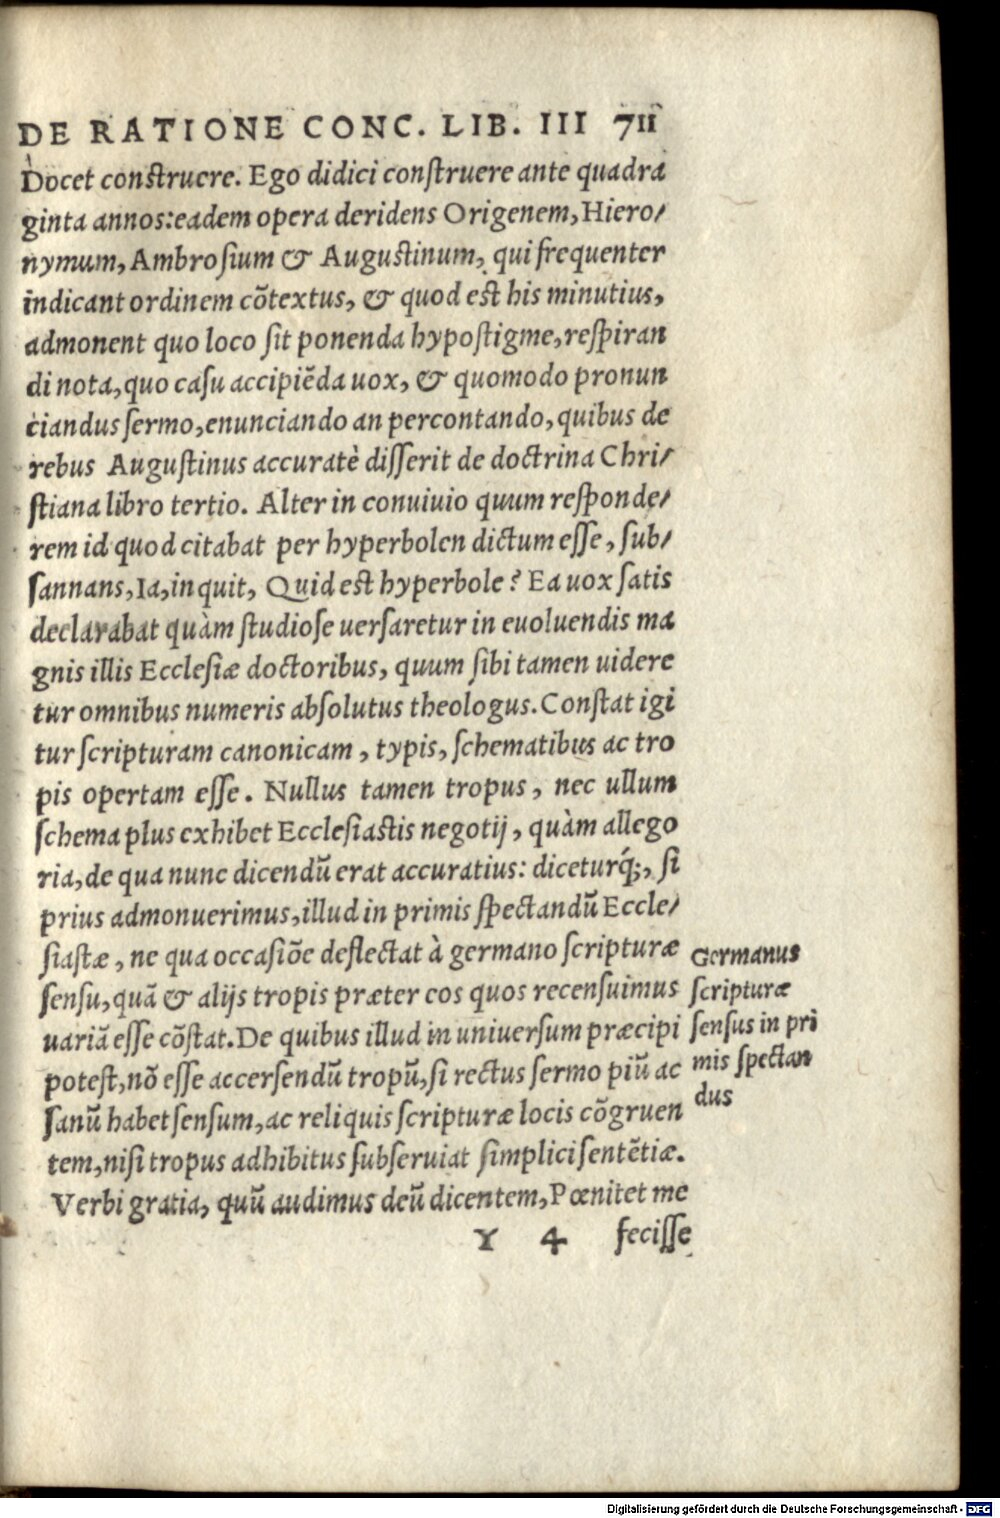 DE RATIONE CONC. LIB. III 711
Docet construere. Ego didici conſtruere ante quadra
ginta annos:eadem opera deridens Origenem,Hiero/
nymum,Ambroſium & Auguſtinum, qui frequenter
indicant ordinem cõtextus, & quod est his minutius,
admonent quo loco ſit ponenda hypoſtigme,reſpiran
di nota,quo caſu accipiẽda uox, & quomodo pronun
ciandus ſermo,enunciando an percontando,quibus de
rebus Auguſtinus accuratè diſſerit de doctrina Chri/
ſtiana libro tertio. Alter in conuiuio quum reſponde/
rem id quod citabat per hyperbolen dictum eſſe, ſub/
ſannans,Ia,inquit, Quid est hyperbole? Ea uox ſatis
declarabat quàm ſtudioſe uerſaretur in euoluendis ma
gnis illis Eccleſiæ doctoribus, quum ſibi tamen uidere
tur omnibus numeris abſolutus theologus.Conſtat igi
tur ſcripturam canonicam, typis, ſchematibus ac tro
pis opertam eſſe. Nullus tamen tropus, nec ullum
ſchema plus exhibet Eccleſiaſtis negotij, quàm allego
ria,de qua nunc dicendũ erat accuratius: diceturq́;, ſi
prius admonuerimus,illud in primis ſpectandũ Eccle/
ſiaſtæ, ne qua occaſiõe deflectat à germano ſcripturæ
ſenſu,quã & alijs tropis præter eos quos recenſuimus
uariã eſſe cõſtat.De quibus illud in uniuerſum præcipi
poteſt,nõ eſſe accerſendũ tropũ,ſi rectus ſermo piũ ac
ſanũ habet ſenſum,ac reliquis ſcripturæ locis cõgruen
tem,niſi tropus adhibitus ſubſeruiat ſimplici ſentẽtiæ.
Verbi gratia, quũ audimus deũ dicentem,Pœnitet me
Y 4 feciſſe
Germanus
ſcripturæ
ſenſus in pri
mis ſpectan
dus
Digitalisierung gefördert durch die Deutsche Forschungsgemeinschaft - DFG